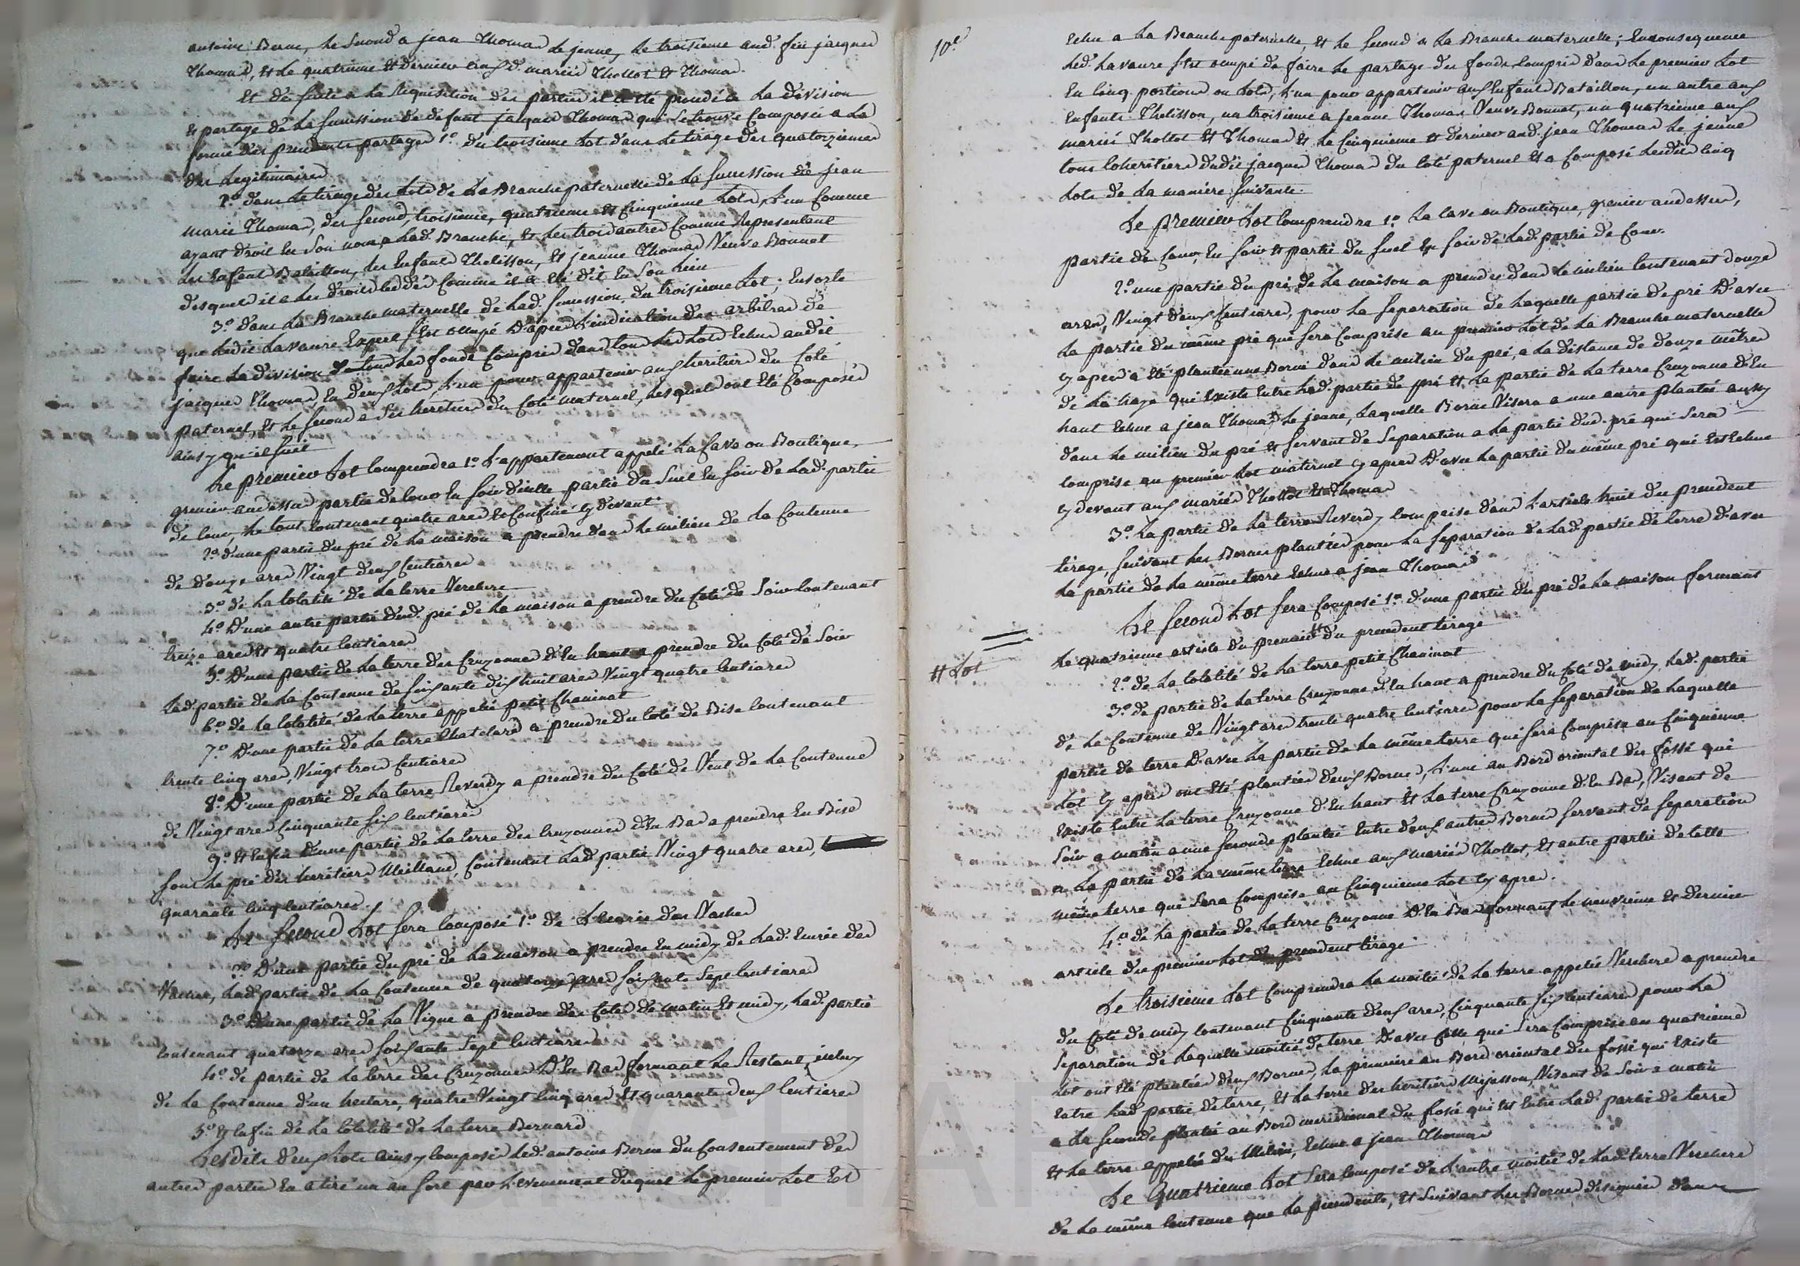 antoine Berne, le Second a jean Thomas le jeune, le troisieme aud. feu jacques
Thomas, et le quatrieme et dernier aux d. mariés Thollot et Thomas.
Et de suite a la Requisition des parties il a été procédé a la division
et partage de la Succession de defunt jacques Thomas qui se trouve Composée a la
forme des precedents partages 1.° du troisieme Lot dans le tirage des quatorziemes
des Legitimaires
2.° dans le tirage des Lots de La Branche paternelle de La Succession de jean
marie Thomas, des Second, troisieme, quatrieme et Cinquieme Lots, l'un Comme
ayant droit En Son nom a Lad. Branche, et les trois autres Comme Representant
les Enfants Bataillon, les Enfants Thelisson, et jeanne Thomas Veuve Bonnet
desquels il a les droits cédés Comme il a été dit En Son Lieu
3.° dans La Branche maternelle de Lad. Succession du troisieme Lot; Ensorte
que Ledit Lavaure Expert s'est occupé D'après L'indication des arbitres de
faire La division de tous Les fonds Compris dans tous Les Lots Echus audit
jacques Thomas, En deux Lots, L'un pour appartenir aux heritiers du Coté
paternel, et Le Second a Ses heritiers du Coté maternel, Lesquels ont été Composés
ainsy qu'il suit
Le premier Lot Comprendra 1.° L'appartement appelé La Cave ou Boutique,
grenier audessus partie de Cour En Soir d'icelle partie du Suel En Soir de Lad. partie
de Cour, Le tout Contenant quatre ares et Confiné Cy devant
2.° d'une partie du pré de La maison a prendre dans Le milieu de La Contenue
de Douze ares Vingt deux Centiares
3.° de La totalité de La terre Verchere
4.° D'une autre partie dud. pré de La maison a prendre du Coté de Soir Contenant
treize ares et quatre Centiares
5.° D'une partie de La terre des Cruzonnes d'En haut a prendre du Coté de Soir
Lad. partie de La Contenue de Soixante dix huit ares Vingt quatre Centiares
6.° de La totalité de La terre appelée petit Chaninat
7.° D'une partie de La terre Chatelard a prendre du Coté de Bise Contenant
trente Cinq ares Vingt trois Centiares
8.° D'une partie de La terre Reverdy a prendre du Coté de Vent de La Contenue
de Vingt ares Cinquante Six Centiares
9.° Et Enfin D'une partie de La terre des Cruzonnes d'En Bas a prendre En Bise
Sous Le pré des heritiers Meilland, Contenant Lad. partie Vingt quatre ares,
quarante Cinq Centiares.
Le Second Lot Sera Composé 1.° de L'Ecurie des Vaches
2.° D'une partie du pré de La maison a prendre En midy de Lad. Ecurie des
Vaches, Lad. partie de La Contenue de quatorze ares Soixante Sept Centiares
3.° D'une partie de La Vigne a prendre des Cotés de matin et midy, Lad. partie
Contenant quatorze ares Soixante Sept Centiares
4.° de partie de La terre des Cruzonnes D'En Bas formant Le Restant
de La Contenue d'un hectare, quatre Vingt Cinq ares et quarante deux Centiares
5.° et Enfin de La totalité de La terre Bernard
Lesdits deux Lots ainsy Composés Led. antoine Berne du Consentement des
autres parties En a tiré un au Sort par L'evenement duquel Le premier Lot Est
10.e
Echu a La Branche paternelle, et Le Second a La Branche maternelle; Enconsequence
Led. Lavaure s'est occupé de faire Le partage des fonds Compris Dans Le premier Lot
En Cinq portions ou Lots, L'un pour appartenir aux Enfants Bataillon, un autre aux
Enfants Thelisson, un troisieme a jeanne Thomas Veuve Bonnet, un quatrieme aux
mariés Thollot et Thomas et Le Cinquieme et dernier aud. jean Thomas Le jeune
tous Coheritiers dudit jacques Thomas du Coté paternel et a Composé Lesdits Cinq
Lots de La maniere Suivante.
Le premier Lot Comprendra 1.° La Cave ou Boutique, grenier audessus,
partie de Cour, En Soir et partie du Suel En Soir de Lad. partie de Cour.
2.° une partie du pré de La maison a prendre dans Le milieu Contenant douze
ares, Vingt deux Centiares, pour La Separation de Laquelle partie de pré D'avec
La partie du même pré qui Sera Comprise au premier Lot de La Branche maternelle
Cy après a été plantée une Borne dans Le milieu du pré, a La distance de Douze mètres
de La haye qui Existe Entre Lad. partie de pré et La partie de La terre Cruzonne d'En
haut Echue a jean Thomas Le jeune, Laquelle Borne Visera a une autre plantée aussy
dans Le milieu du pré et Servant de Separation a La partie dud. pré qui Sera
Comprise au premier Lot maternel Cy après D'avec La partie du même pré qui Est Echue
Cy devant aux mariés Thollot et Thomas
3.° La partie de La terre Reverdy Comprise dans L'article huit du precedent
tirage, Suivant Les Bornes plantées pour La Separation de Lad. partie de terre D'avec
La partie de La même terre Echue a jean Thomas
Le Second Lot Sera Composé 1.° d'une partie du pré de La maison formant
Le quatrieme article du premier # du precedent tirage
# Lot
2.° de La totalité de La terre petit Chaninat
3.° de partie de La terre Cruzonne d'En haut a prendre du Coté de midy Lad. partie
de La Contenue de Vingt ares trente quatre Centiares pour La Separation de Laquelle
partie de terre D'avec La partie de La même terre qui Sera Comprise au Cinquieme
Lot Cy après ont été plantées deux Bornes, L'une au Bord oriental du fossé qui
Existe Entre La terre Cruzonne d'En haut et La terre Cruzonne d'En Bas, Visant de
Soir a matin a une Seconde plantée Entre deux autres Bornes Servant de Separation
a La partie de La même terre Echue aux mariés Thollot, et autre partie de Cette
même terre qui Sera Comprise au Cinquieme Lot Cy après.
4.° de La partie de La terre Cruzonne D'En Bas formant Le neuvieme et Dernier
article du premier Lot du precedent tirage
Le troisieme Lot Comprendra La moitié de La terre appelée Verchere a prendre
du Coté de midy Contenant Cinquante deux ares, Cinquante Six Centiares pour La
Separation de Laquelle moitié de terre D'avec Celle qui Sera Comprise au quatrieme
Lot ont été plantées deux Bornes, La premiere au Bord oriental du fossé qui Existe
Entre Lad. partie de terre, et La terre des heritiers Mijasson, Visant de Soir a matin
a La Seconde plantée au Bord meridional du fossé qui Est Entre Lad. partie de terre
et La terre appelée du Milieu, Echue a jean Thomas
Le Quatrieme Lot Sera Composé de L'autre moitié de Lad. terre Verchere
de La même Contenue que La precedente, et Suivant Les Bornes designées dans